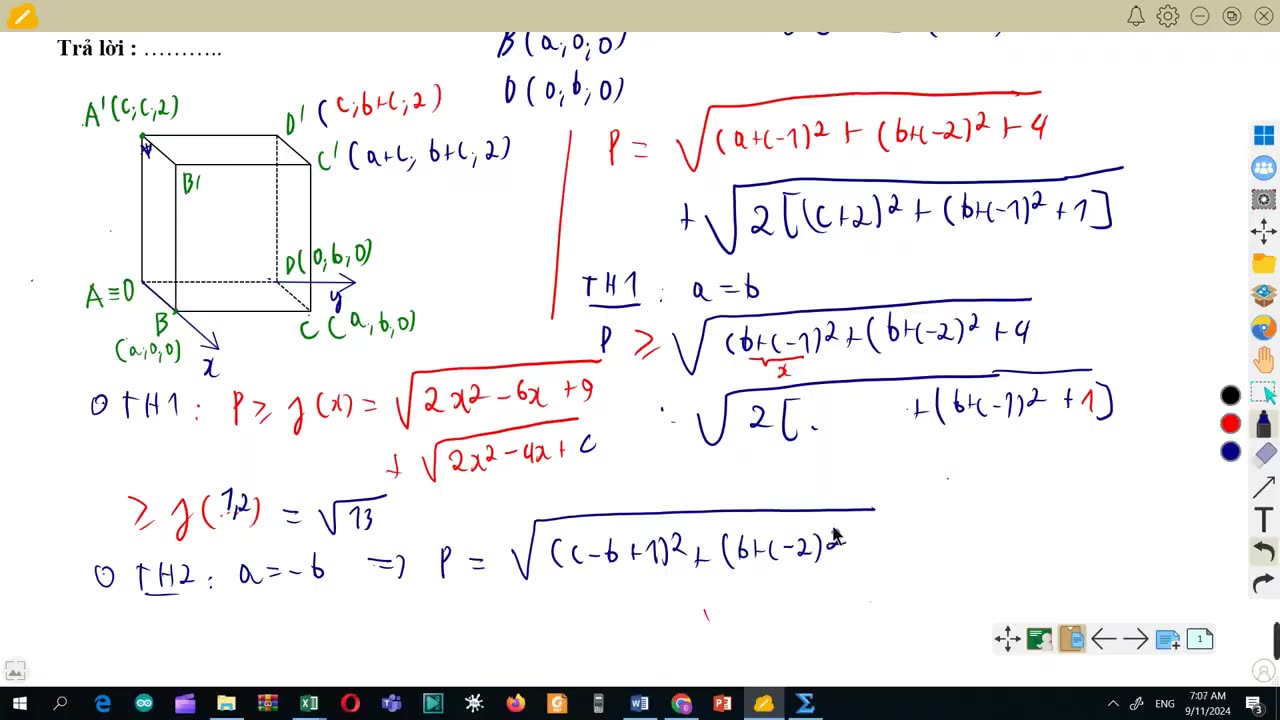 Trả lời : ………..
B(a;0;0)
D(0;b;0)
A'(c;c;2)
D' (c;b+c;2)
C' (a+c; b+c;2)
B'
D(0;b;0)
A≡O
B
(a;0;0)
C (a,b,0)
x
y
P = √((a+c-1)² + (b+c-2)² + 4
+ √(2[(c+2)² + (b+c-1)² + 1]
TH1 : a = b
P ≥ √((b+c-1)² + (b+c-2)² + 4
x
√(2[. + (b+c-1)² + 1]
O TH1 : P ≥ g(x) = √(2x² - 6x + 9
+ √(2x² - 4x + c
≥ g(1,2) = √13
O TH2 : a = -b => P = √((c-b+1)² + (b+c-2)²
1
T
7:07 AM
ENG
9/11/2024
3